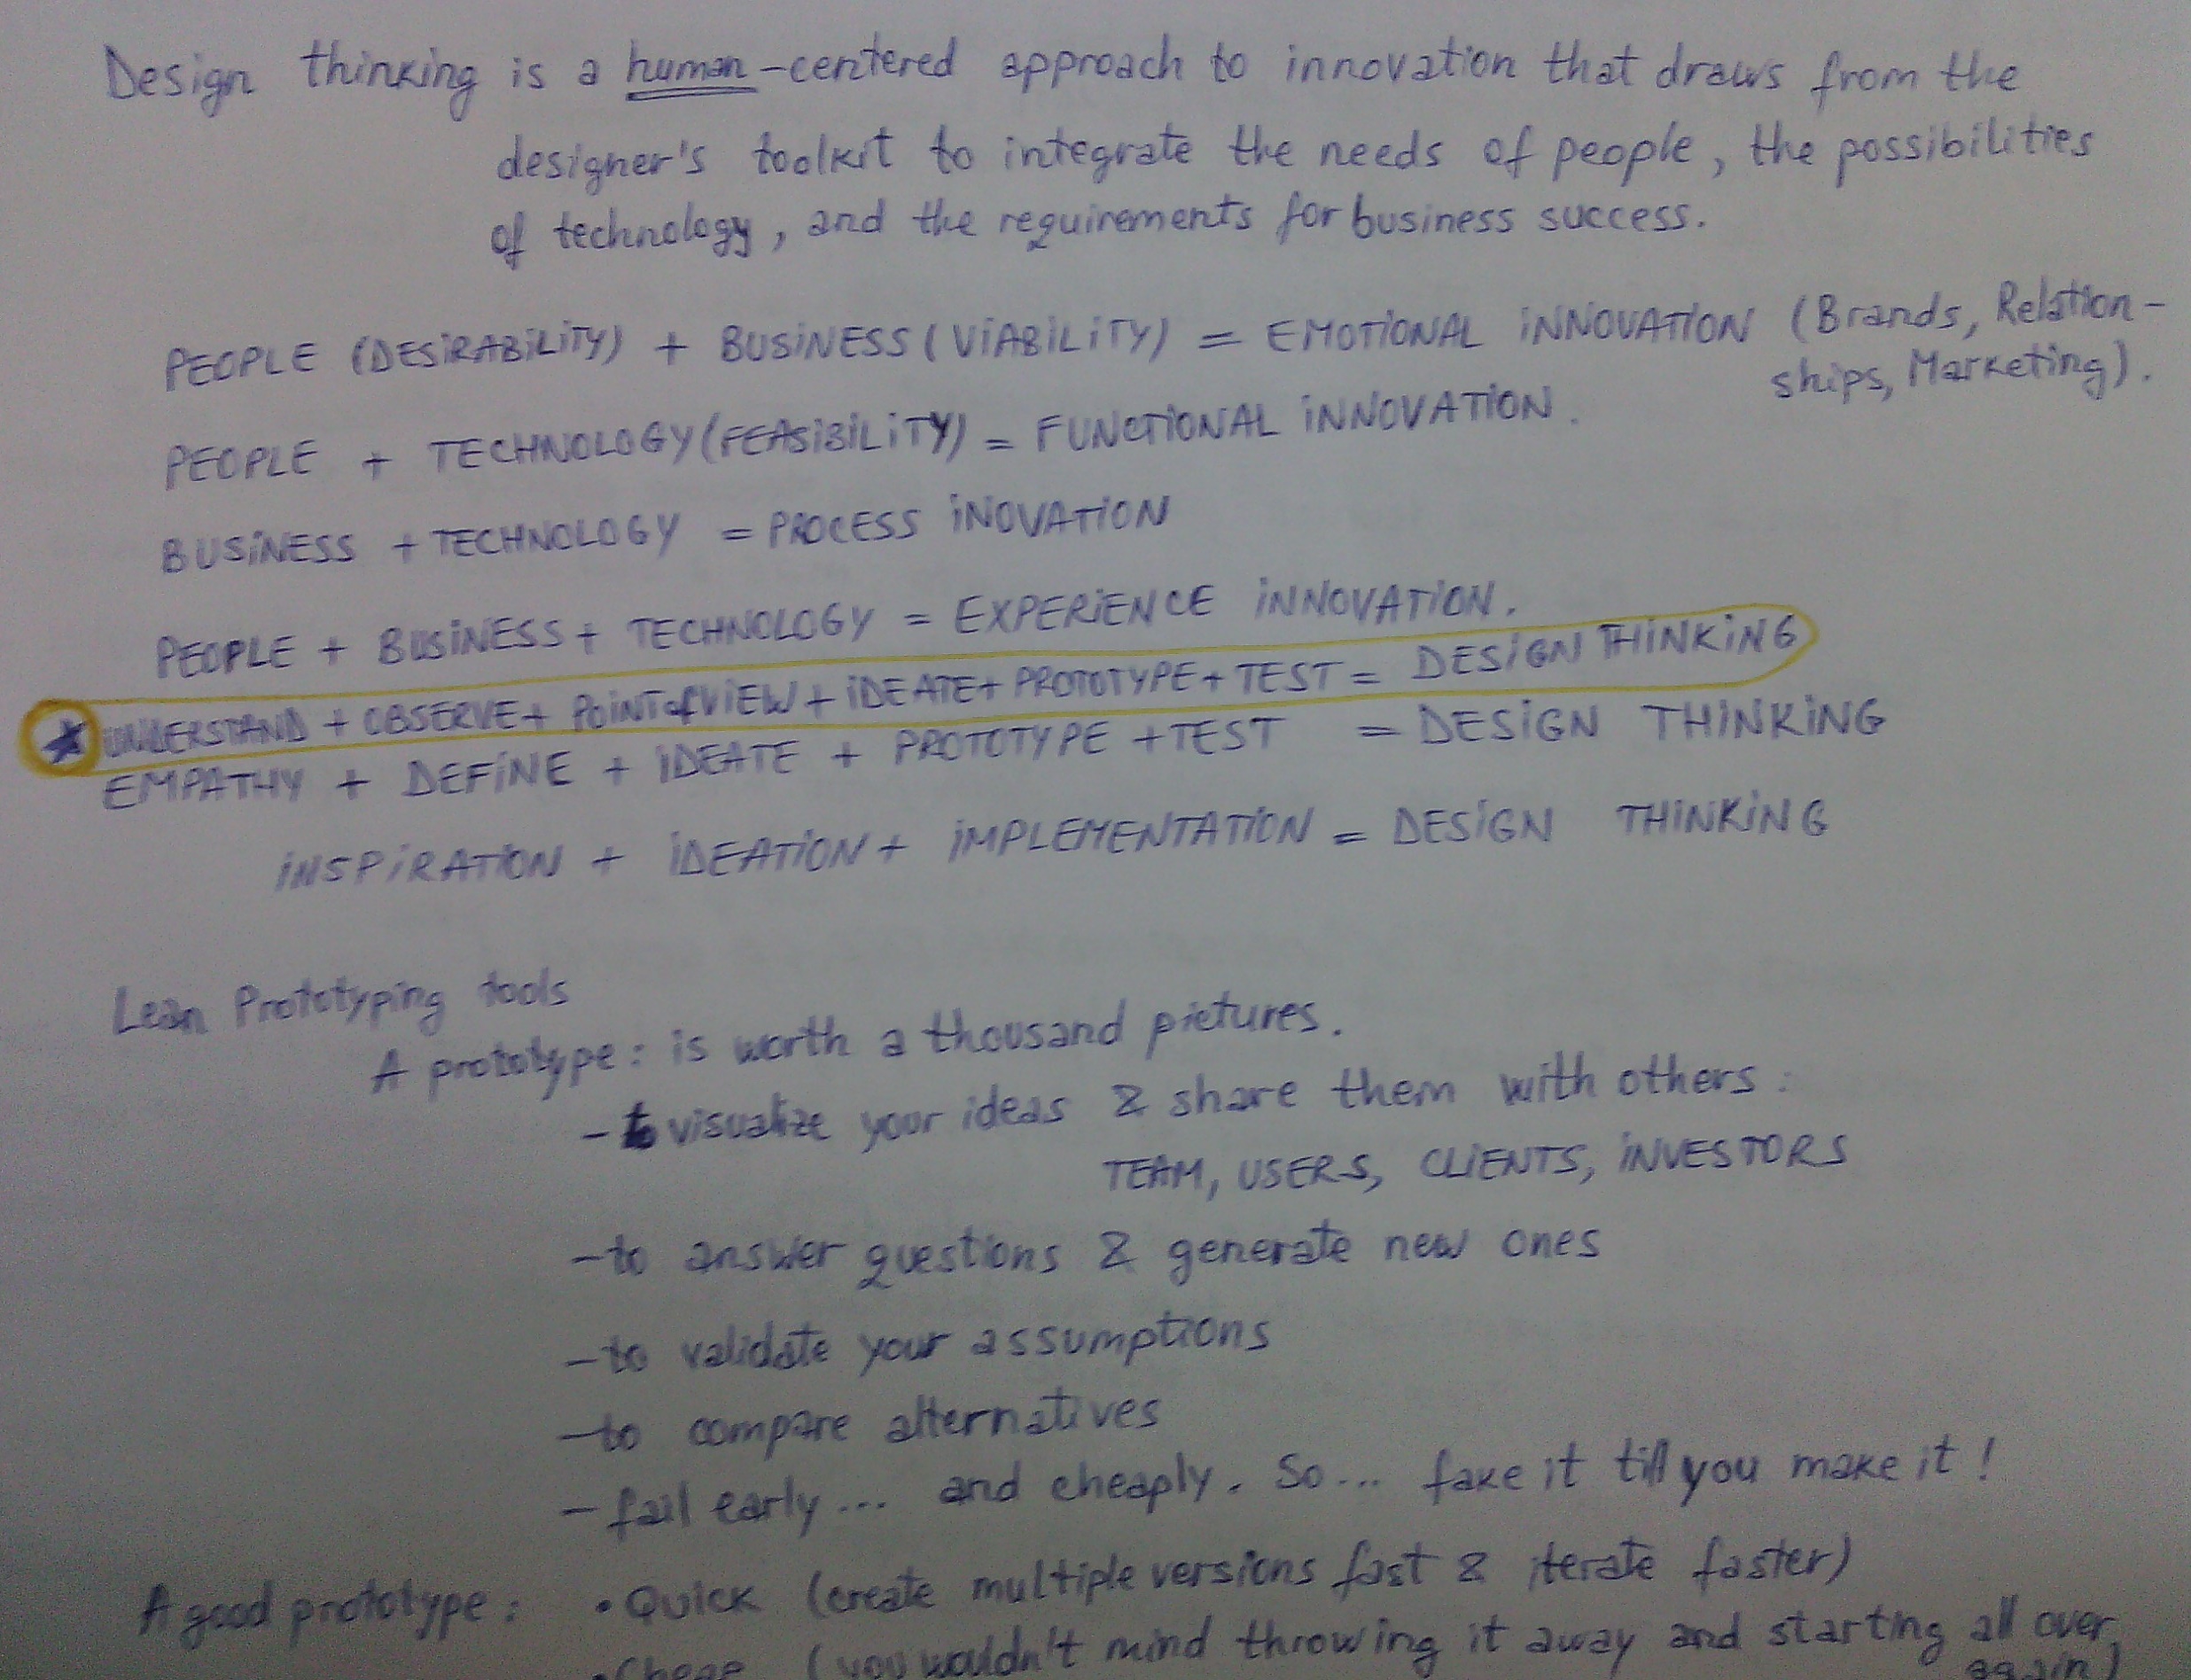 Design thinking is a human-centered approach to innovation that draws from the
designer's toolkit to integrate the needs of people, the possibilities
of technology, and the requirements for business success.
PEOPLE (DESIRABILITY) + BUSINESS (VIABILITY) = EMOTIONAL INNOVATION (Brands, Relation-
ships, Marketing).
PEOPLE + TECHNOLOGY (FEASIBILITY) = FUNCTIONAL INNOVATION.
BUSINESS + TECHNOLOGY = PROCESS INOVATION
PEOPLE + BUSINESS + TECHNOLOGY = EXPERIENCE INNOVATION.
* UNDERSTAND + OBSERVE + POINT of VIEW + IDEATE + PROTOTYPE + TEST = DESIGN THINKING
EMPATHY + DEFINE + IDEATE + PROTOTYPE + TEST = DESIGN THINKING
INSPIRATION + IDEATION + IMPLEMENTATION = DESIGN THINKING
Lean Prototyping tools
A prototype: is worth a thousand pictures.
- to visualize your ideas & share them with others:
TEAM, USERS, CLIENTS, INVESTORS
- to answer questions & generate new ones
- to validate your assumptions
- to compare alternatives
- fail early... and cheaply. So... fake it till you make it!
A good prototype: • Quick (create multiple versions fast & iterate faster)
• Cheap (you wouldn't mind throwing it away and starting all over
again)